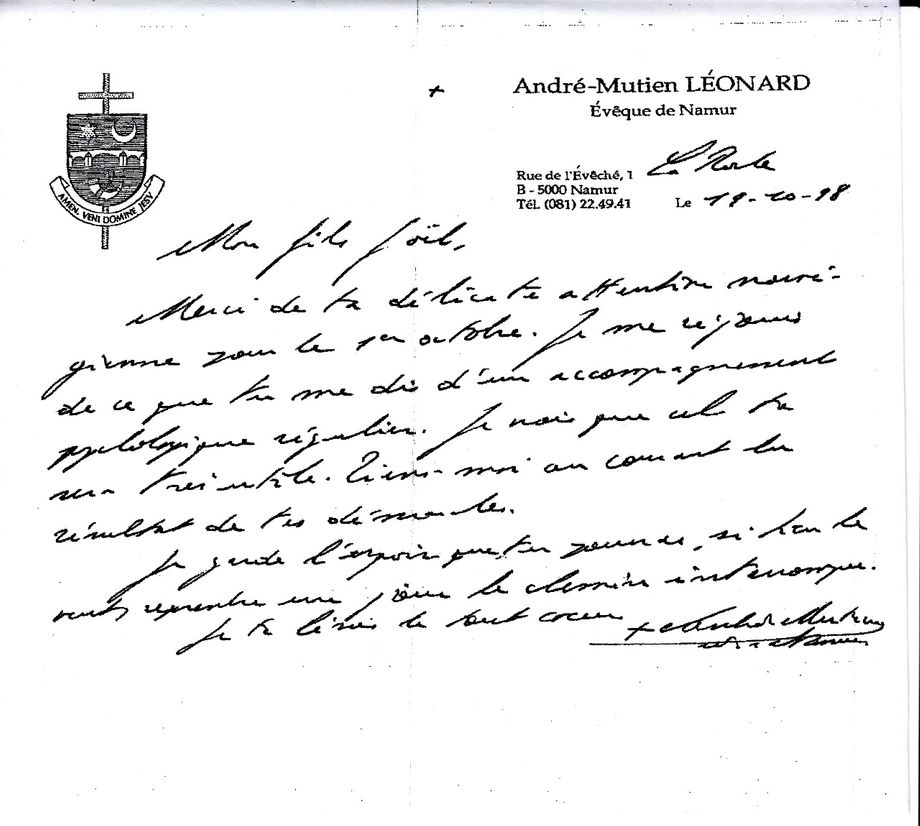 +
André-Mutien LÉONARD
Évêque de Namur
Rue de l'Évêché, 1
B - 5000 Namur
Tél. (081) 22.49.41
La Roche
Le 19-10-98
AMEN, VENI DOMINE JESV
Mon fils Joël,
Merci de ta délicate attention norvé-
gienne pour le 1er octobre. Je me réjouis
de ce que tu me dis d'un accompagnement
psychologique régulier. Je crois que cela te
sera très utile. Tiens-moi au courant du
résultat de tes démarches.
Je garde l'espoir que tu pourras, si Dieu le
veut, reprendre un jour le chemin interrompu.
Je te bénis de tout coeur
+ André-Mutien
de Namur